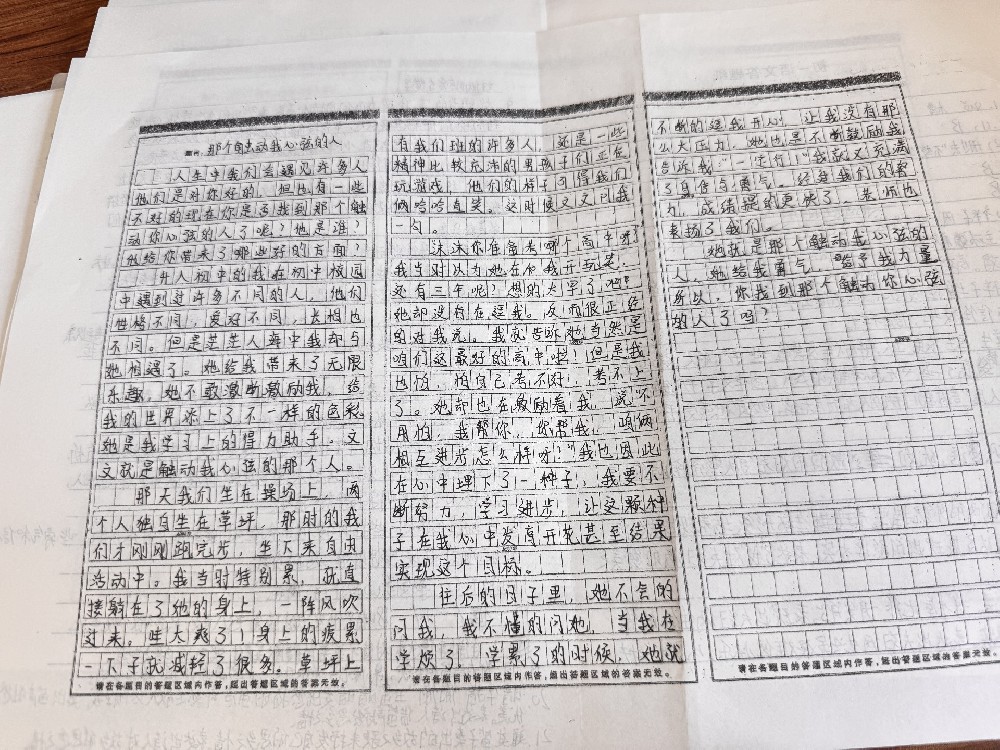 那个触动我心弦的人
人生中我们会遇见许多人
他们是对你好的，但也有一些
不好的现在你是否找到那个触
动你心弦的人了呢？他是谁？
他给你带来了哪些好的方面？
升入初中的我在初中校园
中遇到过许多不同的人，他们
性格不同，爱好不同，长相也
不同。但是茫茫人海中我却与
她相遇了。她给我带来了无限
乐趣，她不敢激励激励我，给
我的世界添上了不一样的色彩
她是我学习上的得力助手。文
文就是触动我心弦的那个人。
那天我们坐在操场上，两
个人独自坐在草坪，那时的我
们才刚刚跑完步，坐下来自由
活动中。我当时特别累，就直
接躺在了她的身上，一阵风吹
过来。哇太爽了！身上的疲累
一下子就减轻了很多。草坪上
请在各题目的答题区域内作答，超出答题区域的答案无效。
有我们班的许多人，还是一些
精神比较充沛的男孩子们正在
玩游戏，他们的样子可得我们
俩哈哈直笑。这时候文文问我
一句。
沫沫你准备考哪个高中呀？
我当时以为她在和我开玩笑，
还有三年呢？想的太早了吧！
她却没有在逗我。反而很正经
的对我说。我就告诉她当然是
咱们这最好的高中啦！但是我
也怕，怕自己考不好，考不上
了。她却也在激励着我，说不
用怕，我帮你，你帮我，咱俩
相互进步怎么样呀？”我也因此
在心中埋下了一种子，我要不
断努力，学习进步，让这颗种
子在我心中发高开花甚至结果
实现这个目标。
往后的日子里，她不会的
问我，我不懂的问她，当我在
学烦了，学累了的时候，她就
请在各题目的答题区域内作答，超出答题区域的答案无效。
不断的逗我开心，让我没有那
么大压力，她也是不断鼓励我
告诉我“一定行！”我就又充满
了自信与勇气。经过我们的努
力，成绩提的更快了，老师也
表扬了我们。
她就是那个触动我心弦的
人，她给我勇气，给予我力量
所以，你找到那个触动你心弦
的人了吗？
请在各题目的答题区域内作答，超出答题区域的答案无效。